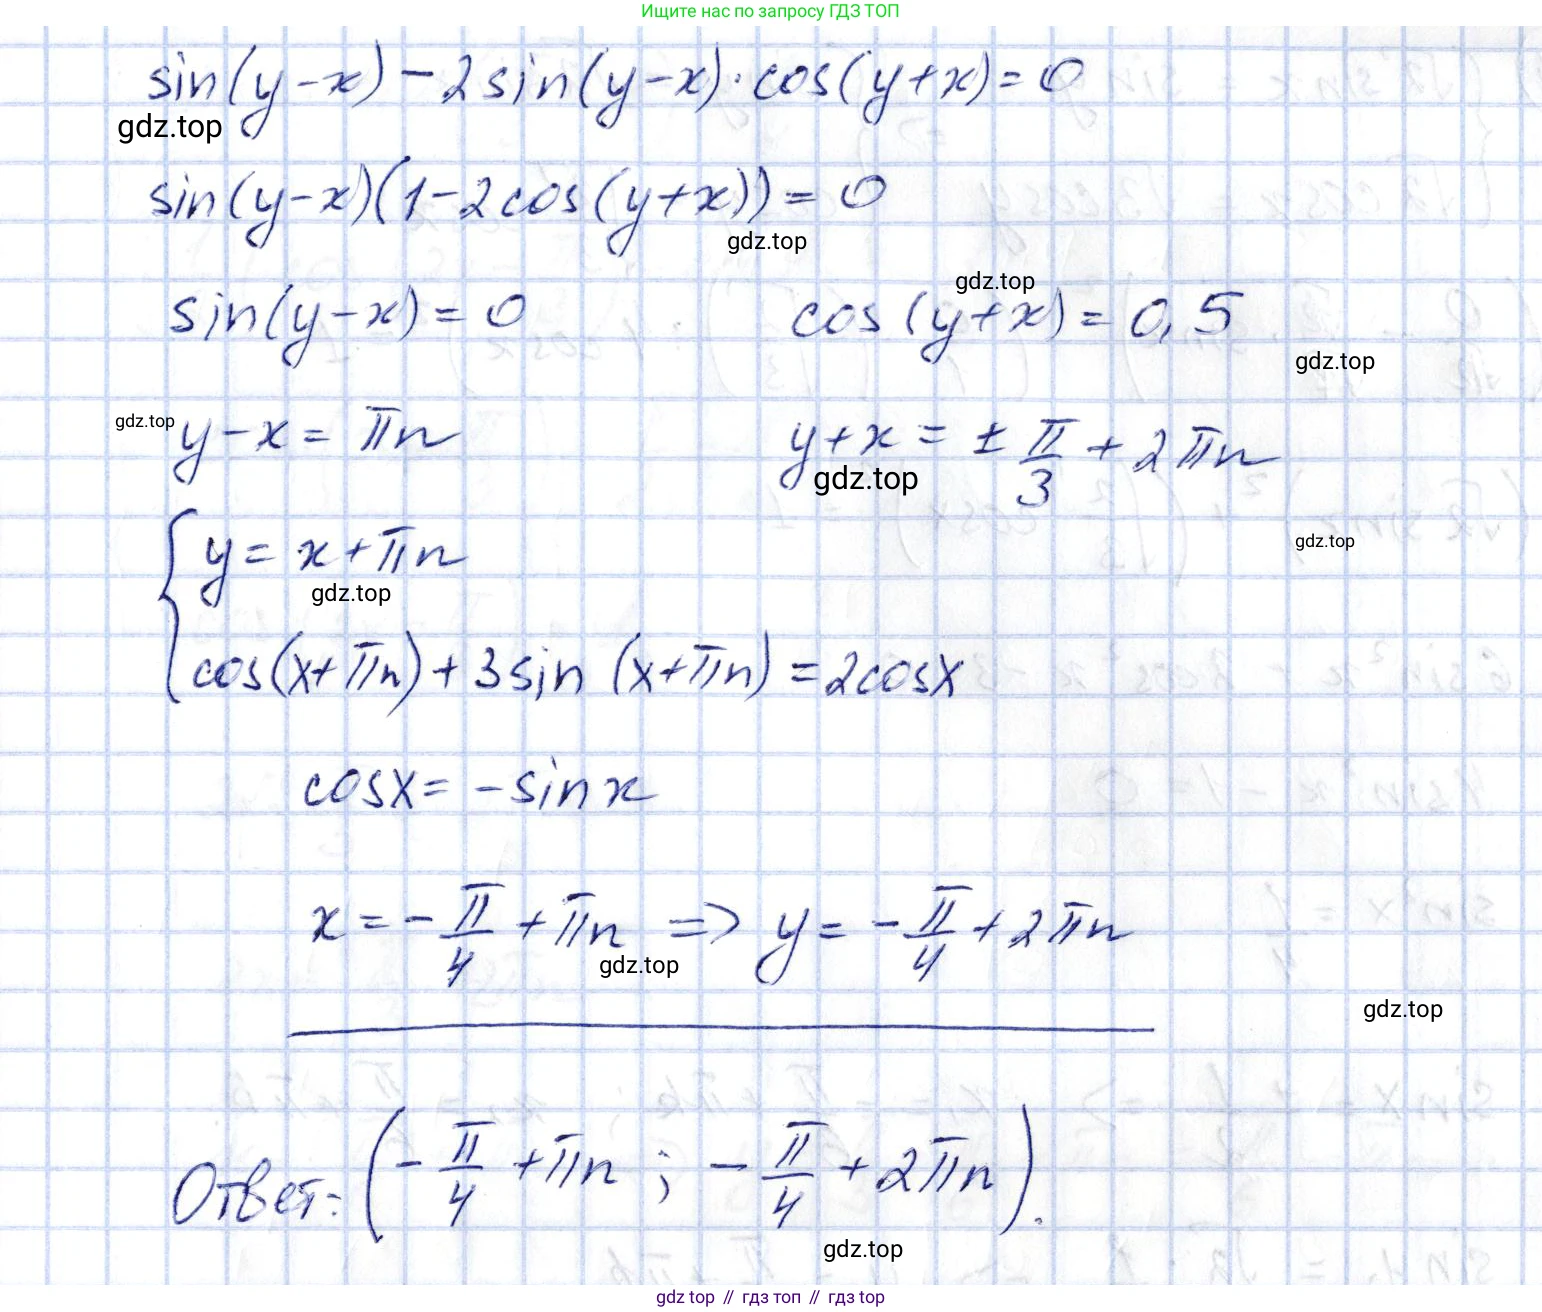 Ищите нас по запросу ГДЗ ТОП
sin(y-x)-2sin(y-x)·cos(y+x)=0
gdz.top
sin(y-x)(1-2cos(y+x))=0
gdz.top
gdz.top
sin(y-x)=0 cos(y+x)=0,5
gdz.top
gdz.top
y-x=πn y+x=±π/3+2πn
gdz.top
gdz.top
{y=x+πn
gdz.top
cos(x+πn)+3sin(x+πn)=2cosx
cosx=-sinx
x=-π/4+πn => y=-π/4+2πn
gdz.top
gdz.top
Ответ: (-π/4+πn; -π/4+2πn).
gdz.top
gdz top // гдз топ // гдз top